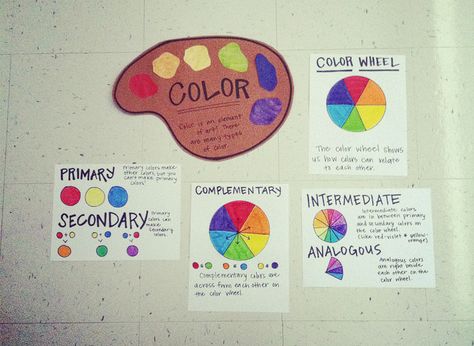 COLOR
Color is an element
of art! There
are many types
of color.
COLOR WHEEL
The color wheel shows
us how colors can relate
to each other.
PRIMARY
Primary colors make
other colors but you
can't make primary
colors!
SECONDARY
Primary
colors can
make
secondary
colors.
COMPLEMENTARY
Complementary colors are
across from each other on
the color wheel.
INTERMEDIATE
Intermediate colors
are in between primary
and secondary colors on
the color wheel.
(like red-violet & yellow-
orange)
ANALOGOUS
Analogous colors
are right beside
each other on the
color wheel.